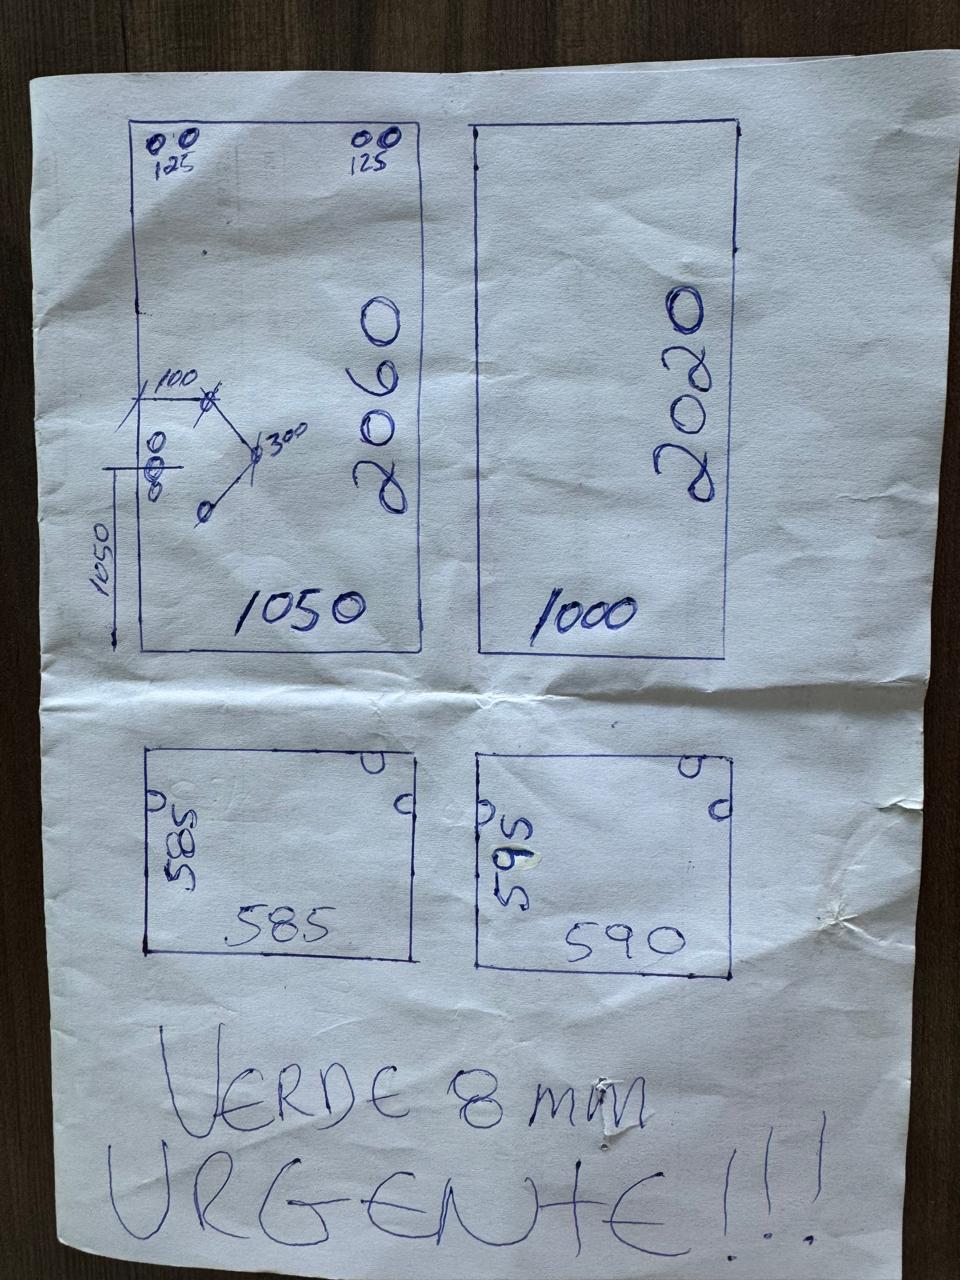 125
125
2060
100
300
1050
1050
2020
1000
585
585
595
590
VERDE 8 mm
URGENTE!!!